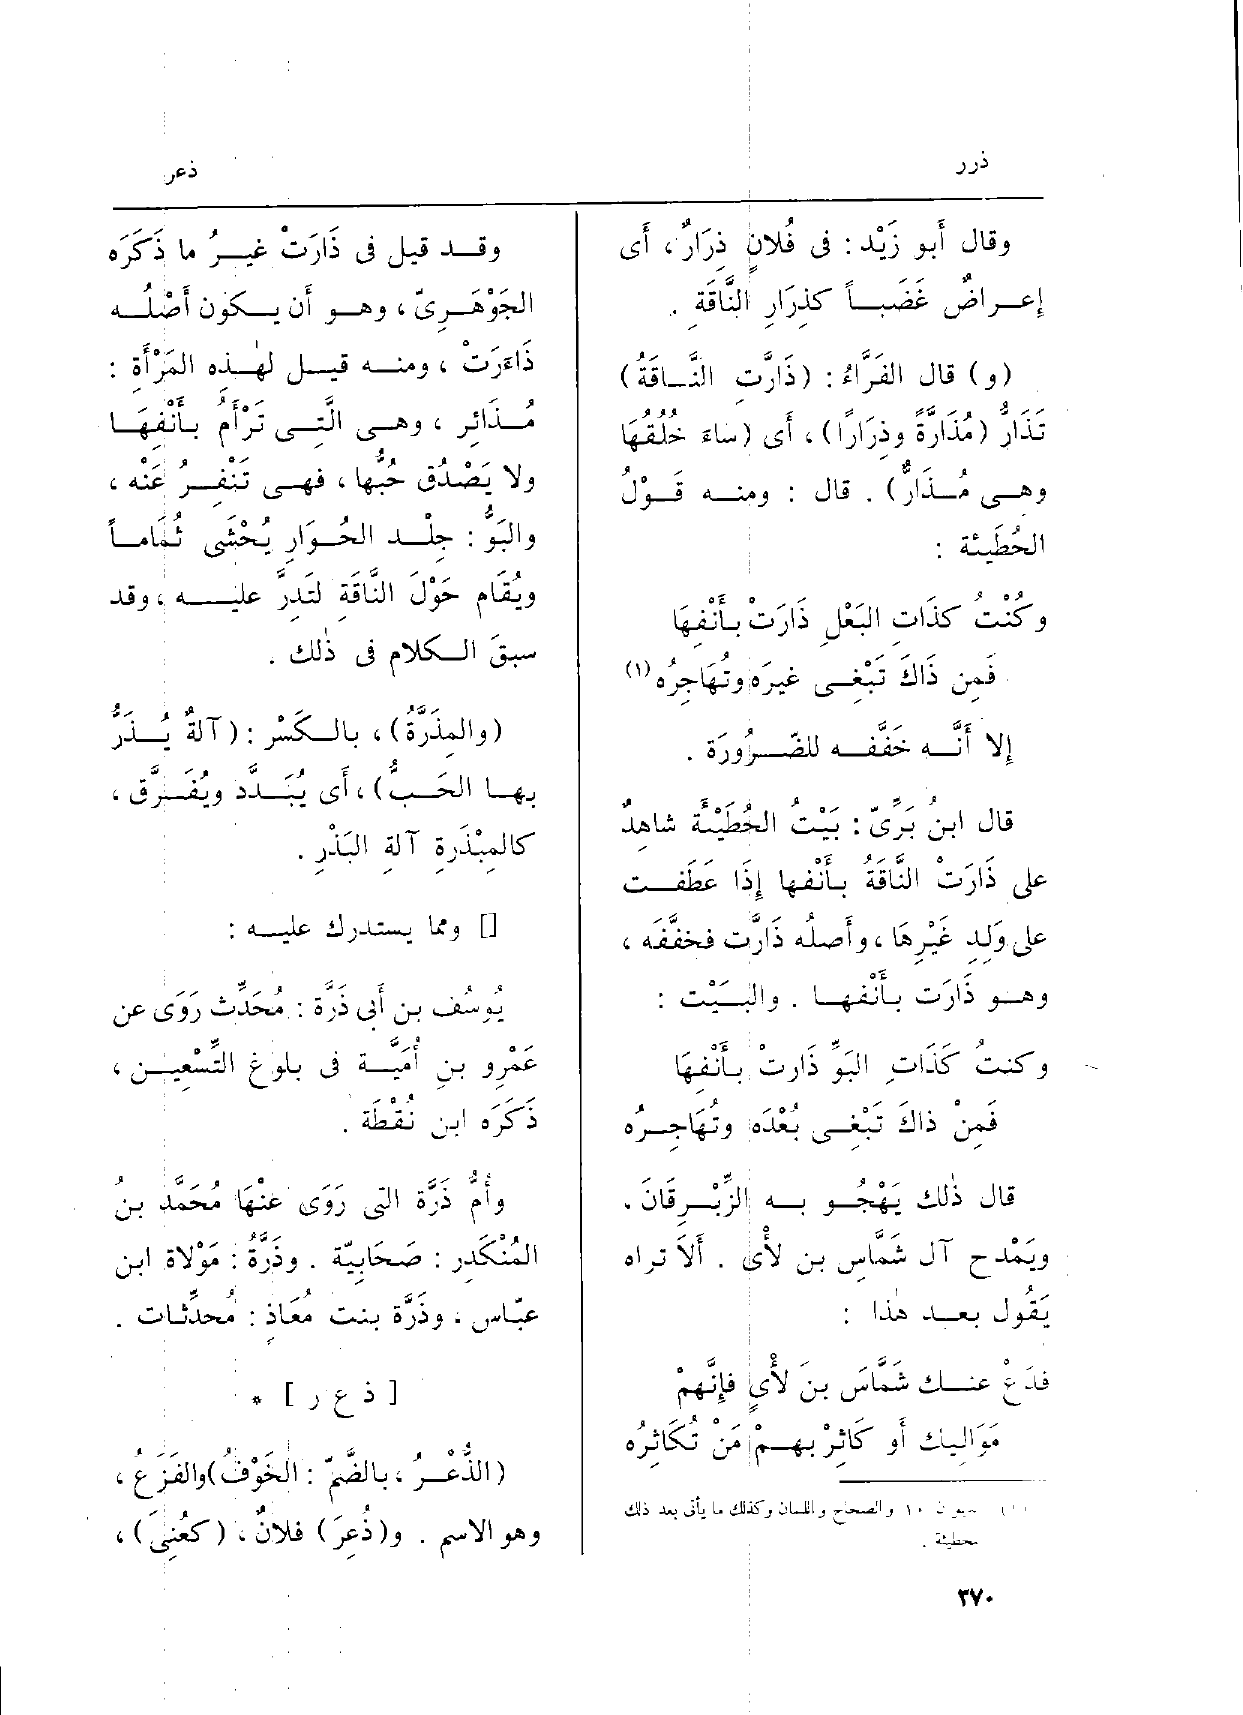 ذرر
ذعر
وقال أَبو زَيْد : فى فُلانٍ ذِرَارٌ ، أَى
إِعـراضٌ غَضَبـاً كذِرَارِ النَّاقَةِ .
(و) قال الفَرَّاءُ : (ذَارَّتِ النَّـاقَةُ)
تَذَارُّ (مُذَارَّةً وذِرَارًا) ، أَى (سَاءَ خُلُقُهَا
وهـى مُـذَارٌّ) . قال : ومنـه قَـوْلُ
الحُطَيْئَة :
وكُنْتُ كَذَاتِ البَعْلِ ذَارَتْ بأَنْفِهَا
فَمِن ذَاكَ تَبْغِـى غَيرَه وتُهَاجِرُه (١)
إِلا أَنَّـه خَفَّفـه للضَّـرُورَة .
قال ابنُ بَرِّىّ : بَيْتُ الحُطَيْئَة شاهِدٌ
على ذَارَتْ النَّاقَةُ بأَنْفِها إِذَا عَطَفَت
على وَلَدِ غَيْرِهَا ، وأَصلُه ذَارَّت فخَفَّفَه ،
وهـو ذَارَت بأَنْفِهـا . والبَـيْت :
وكنتُ كَذَاتِ البَوِّ ذَارتْ بأَنْفِهَا
فَمِنْ ذاكَ تَبْغِـى بُعْدَه وتُهَاجِـرُه
قال ذٰلك يَهْجُـو بـه الزِّبْـرِقَانَ .
ويَمْدح آلَ شَمَّاسِ بن لأْى . أَلاَ تراه
يَقُول بعـد هٰذا :
فدَعْ عنـك شَمَّاسَ بنَ لأْىٍ فإِنَّهمْ
مَوَالِيك أَو كَاثِرْ بِهـمْ مَنْ تُكَاثِرُه
١٠ والصحاح واللسان وكذلك ما يأتى بعد ذلك
٣٧٠
وقـد قيل فى ذَارَتْ غيـرُ ما ذَكَرَه
الجَوْهَـرِىّ ، وهـو أَن يـكون أَصْلُـه
ذَاءَرَتْ ، ومنـه قيـل لهٰـذه المَرْأَة :
مُـذَائِر ، وهـى الَّتِـى تَرْأَمُ بأَنْفِهَـا
ولا يَصْدُق حُبُّها ، فهـى تَنْفِـرُ عَنْه ،
والبَوُّ : جِلْـد الحُـوَارِ يُحْشَى ثُمَامـاً
ويُقَام حَوْلَ النَّاقَةِ لتَدِرَّ عليـه ، وقد
سبقَ الـكلام فى ذٰلك .
(والمِذَرَّةُ) ، بالـكَسْرِ : (آلَةٌ يُـذَرُّ
بهـا الحَـبُّ) ، أَى يُبَـدَّد ويُفَـرَّق ،
كالمِبْذَرَةِ آلةِ البَذْرِ .
[] ومما يستدرك عليـه :
يُوسُف بن أَبى ذَرَّة : مُحَدِّث رَوَى عن
عَمْرِو بنِ أُمَيَّـة فى بلوغ التِّسْعِيـن ،
ذَكَرَه ابن نُقْطَة .
وأُمُّ ذَرَّة التى رَوَى عَنْهَا مُحَمَّد بنُ
المُنْكَدِر : صَحَابِيَّة . وذَرَّةُ : مَوْلاَة ابن
عبّاس ، وذَرَّة بنت مُعَاذ : مُحَدِّثَات .
[ ذ ع ر ] *
(الذُّعْـرُ ، بالضَّمّ : الخَوْفُ) والفَزَعُ ،
وهو الاسم . و(ذُعِرَ) فلانٌ ، (كعُنِىَ) ،